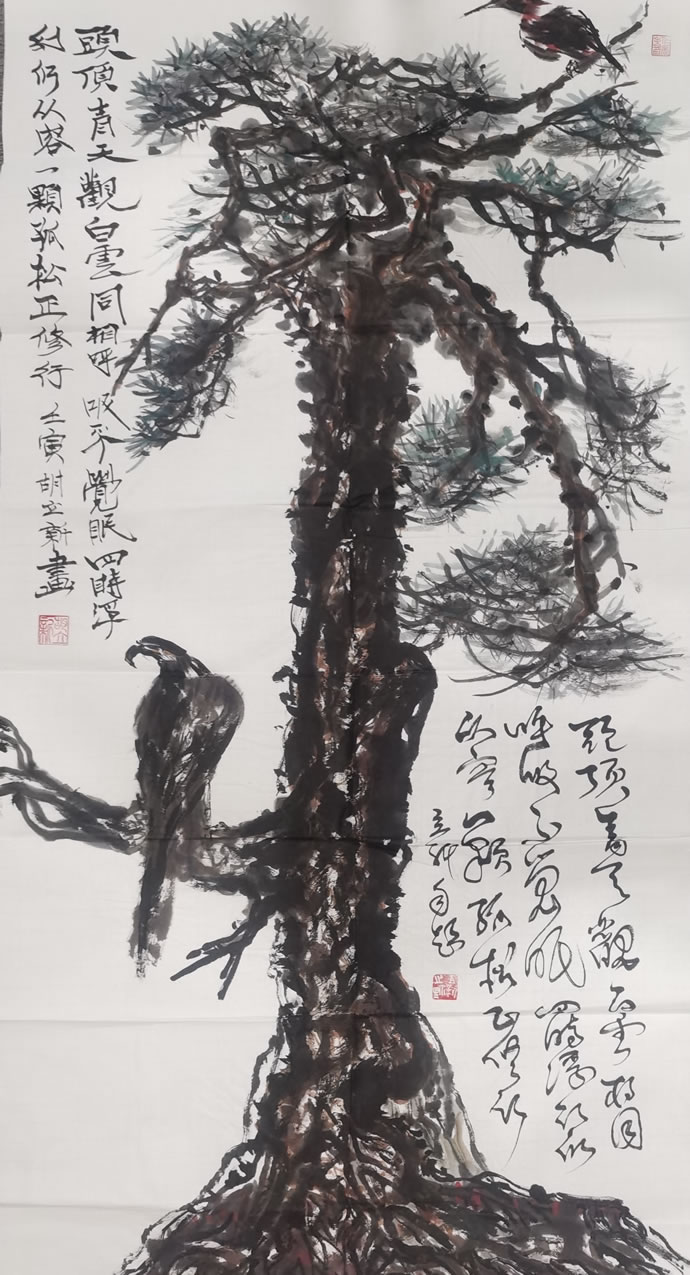 頭頂青天觀白雲同相呼吸不覺眠四時浮
利仍从容一顆孤松正修行 壬寅胡立新畫
頭頂青天觀白雲相同
呼吸不覺眠四時浮利仍
从容一顆孤松正修行
立新自題